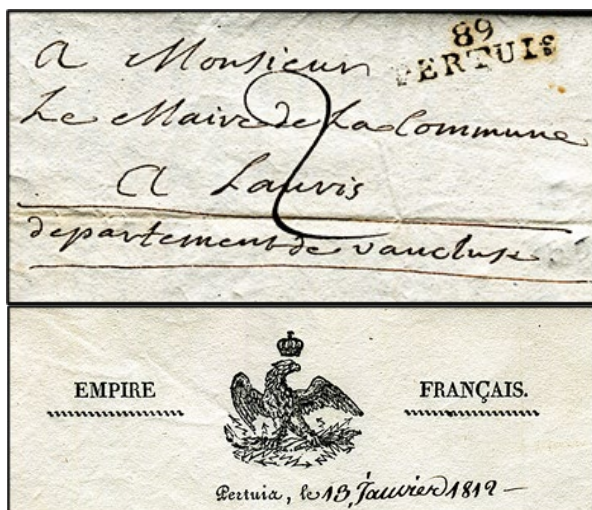 89
PERTUIS
A Monsieur
Le Maire de La Commune
A Lauris
departement de vaucluse
2
EMPIRE FRANÇAIS.
Pertuis, le 13 Janvier 1812